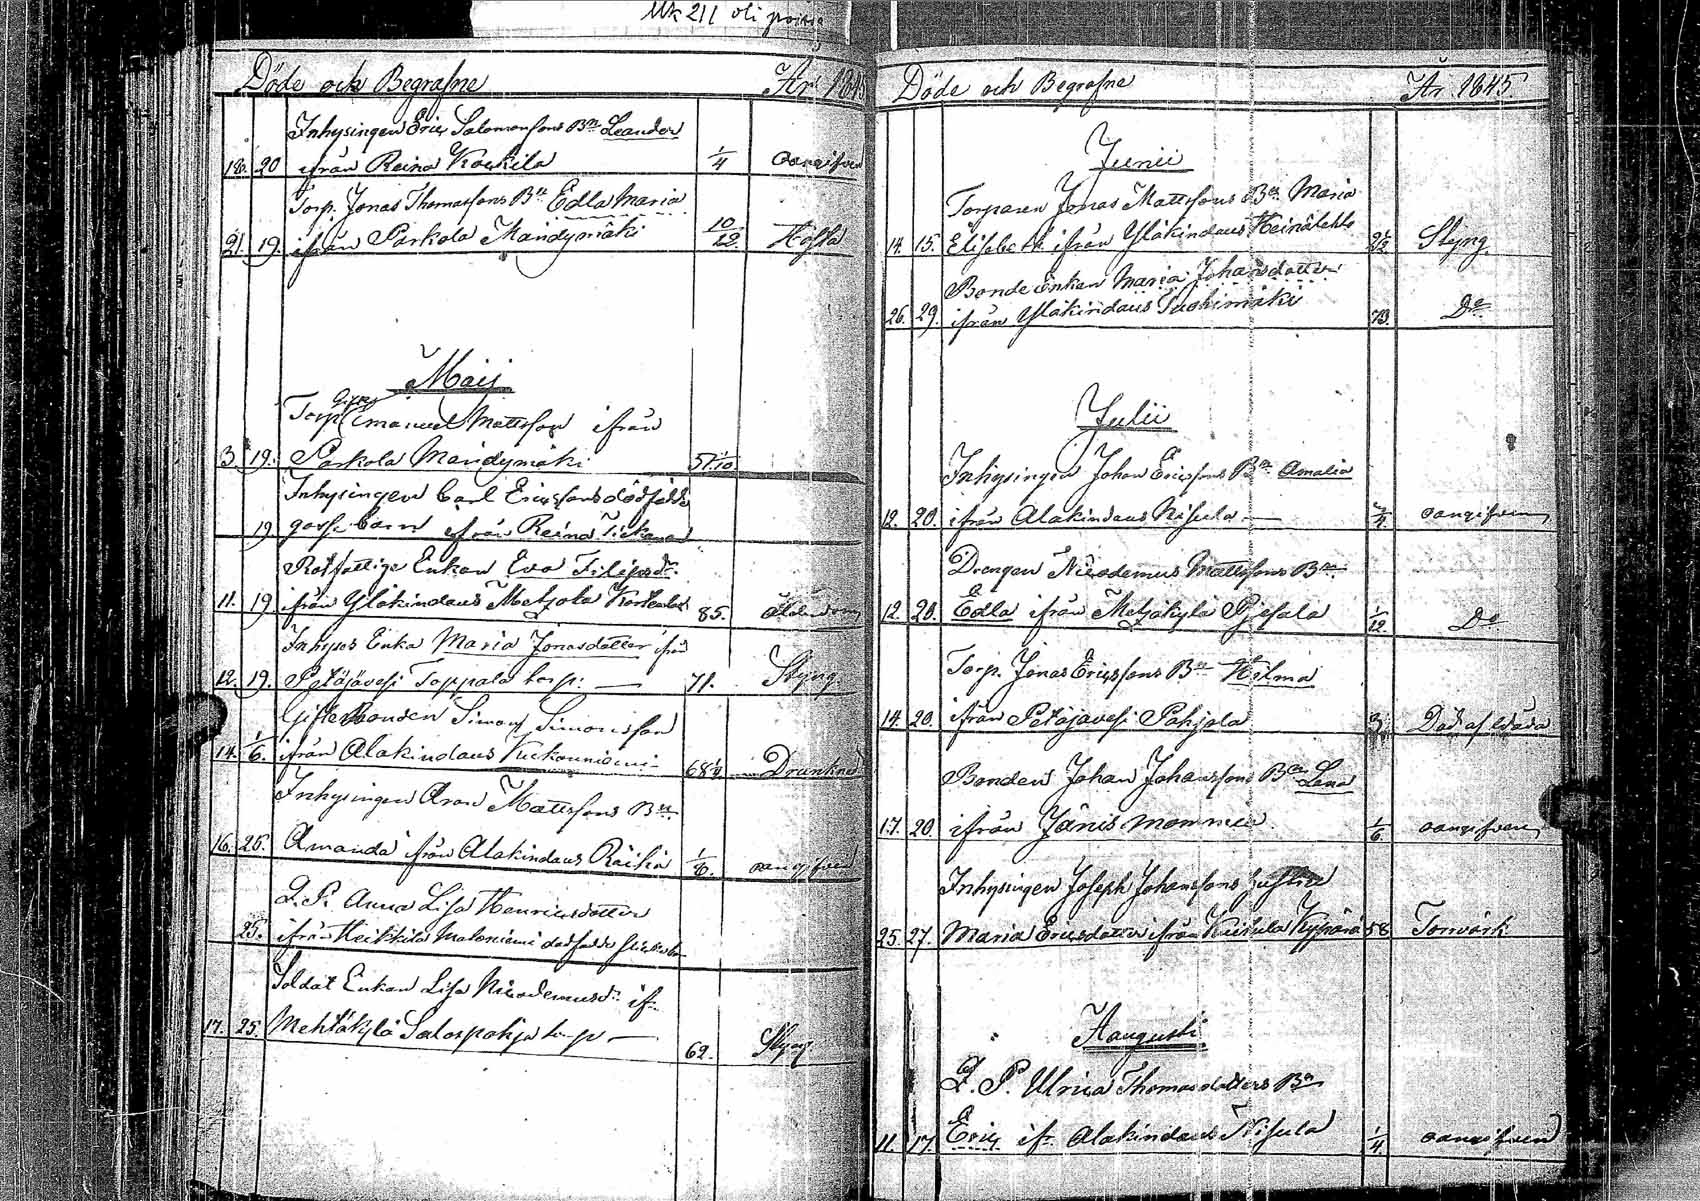 Mk 211 oli poissa
Döde och Begrafne År 1845
Inhysingen Eric Salomonssons Bn Leander
18. 20 ifrån Reina Koskila 1/4 oangifven
Torp. Jonas Thomassons Bn Edla Maria
21. 19. ifrån Parkola Mändymäki 10/12 Hosta
Maij
Gifte
Torp. Emanuel Mattsson ifrån
3. 19. Parkola Mändymäki 51 1/10
Inhysingen Carl Ericssons dödfödde
19 gosse barn ifrån Reina Tickana
Rotfattige Enkan Eva Filipsdr.
11. 19 ifrån Yläkindaus Metzola 85.
Inhyses Enka Maria Jonasdotter ifrån
12. 19. Petäjävesi Toppala torp. 71. Styng
Gifte Bonden Simon Simonsson
14. 1/6. ifrån Alakindaus Kukonniemi 68 Drunknad
Inhysingen Aron Mattssons Bn
16. 25. Amanda ifrån Alakindaus Räihä 1/6. oangifven
Q. P. Anna Lisa Henricsdotter
25. ifrån Heikkilä Matoniemi dödfödde
Soldat Enkan Lisa Nicodemusdr if.
17. 25. Mehtäkylä Salospohja torp 62. Styng
Döde och Begrafne År 1845
Junii
Torparen Jonas Mattssons Bn Maria
14. 15. Elisabeth ifrån Yläkindaus Heinälehto 2 1/2 Styng.
Bonde Enkan Maria Johansdotter
26. 29. ifrån Yläkindaus Tuohimäki 73. Do
Julii
Inhysingen Johan Ericssons Bn Amalia
12. 20. ifrån Alakindaus Nisula 3/4 oangifven
Drengen Nicodemus Mattssons Bn
12. 20. Edla ifrån Metzäkylä Pjesala 1/12 Do
Torp. Jonas Ericssons Bn Hilma
14. 20. ifrån Petäjävesi Pohjola 3/ Död af Wåda
Bonden Johan Johanssons Bn Lena
17. 20. ifrån Jänis Mommila 1/6 oangifven
Inhysingen Joseph Johanssons hustru
25. 27. Maria Ericsdotter ifrån Kuisula Kypärä 58 Torrvärk
Haugusti
Q. P. Ulrica Thomasdotters Bn
11. 17. Eric if. Alakindaus Nisula 1/4 oangifven